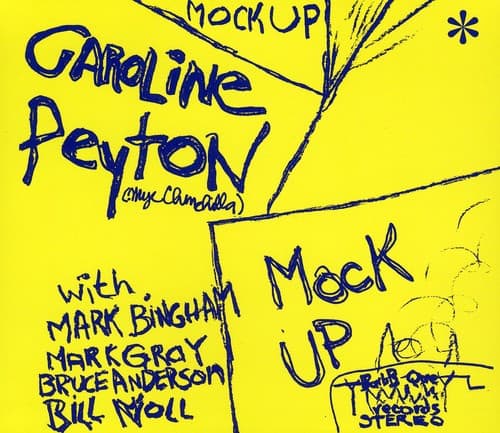 MOCKUP
*
CAROLINE
PEYTON
(Myx Chinchilla)
with
MARK BINGHAM
MARK GRAY
BRUCE ANDERSON
BILL NOLL
MOCK
UP
records
STEREO